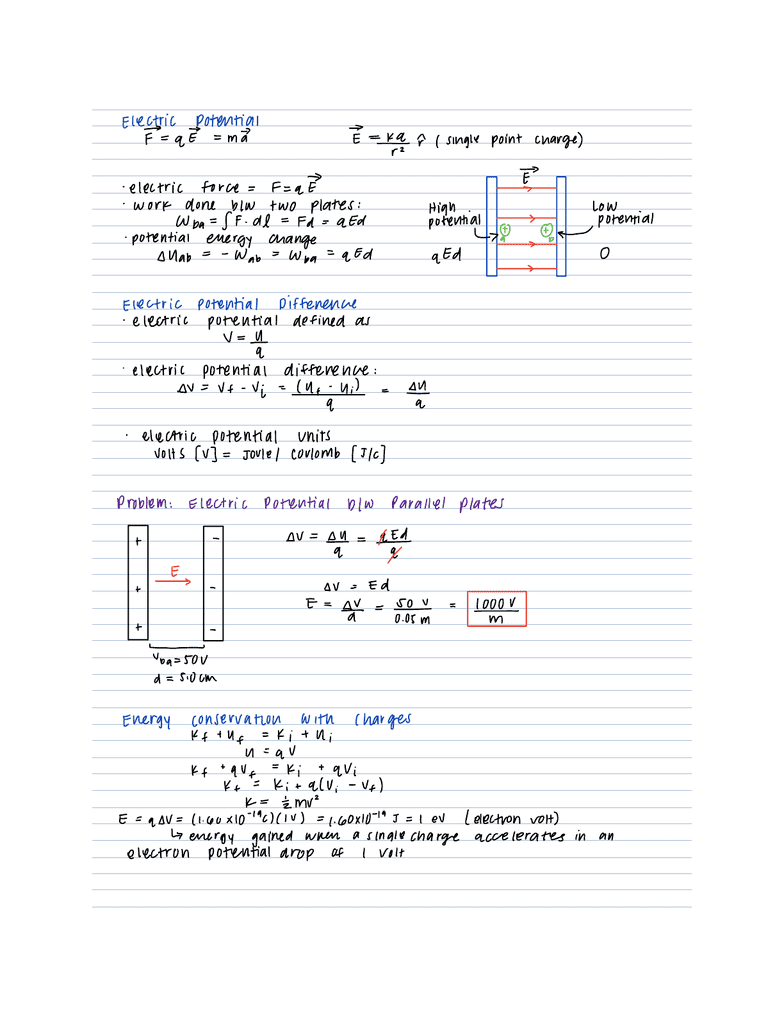 Electric Potential
F⃗ = qE⃗ = ma⃗
E⃗ = kq/r² r̂ (single point charge)
· electric force = F = qE⃗
· work done b/w two plates:
W_ba = ∫F · dl = Fd = qEd
· potential energy change
ΔU_ab = - W_ab = W_ba = qEd
E⃗
High potential
Low potential
+
a
+
b
qEd
0
Electric Potential Difference
· electric potential defined as
V = U/q
· electric potential difference:
ΔV = V_f - V_i = (U_f - U_i)/q = ΔU/q
· electric potential units
volts [V] = joule/coulomb [J/C]
Problem: Electric Potential b/w Parallel Plates
+ -
E
+ -
+ -
V_ba = 50V
d = 5.0cm
ΔV = ΔU/q = qEd/q
ΔV = Ed
E = ΔV/d = 50 V/0.05 m = 1000 V/m
Energy conservation with charges
K_f + U_f = K_i + U_i
U = qV
K_f + qV_f = K_i + qV_i
K_f = K_i + q(V_i - V_f)
K = ½mv²
E = qΔV = (1.60 x10⁻¹⁹C)(1V) = 1.60x10⁻¹⁹ J = 1 eV (electron volt)
↳ energy gained when a single charge accelerates in an
electron potential drop of 1 volt